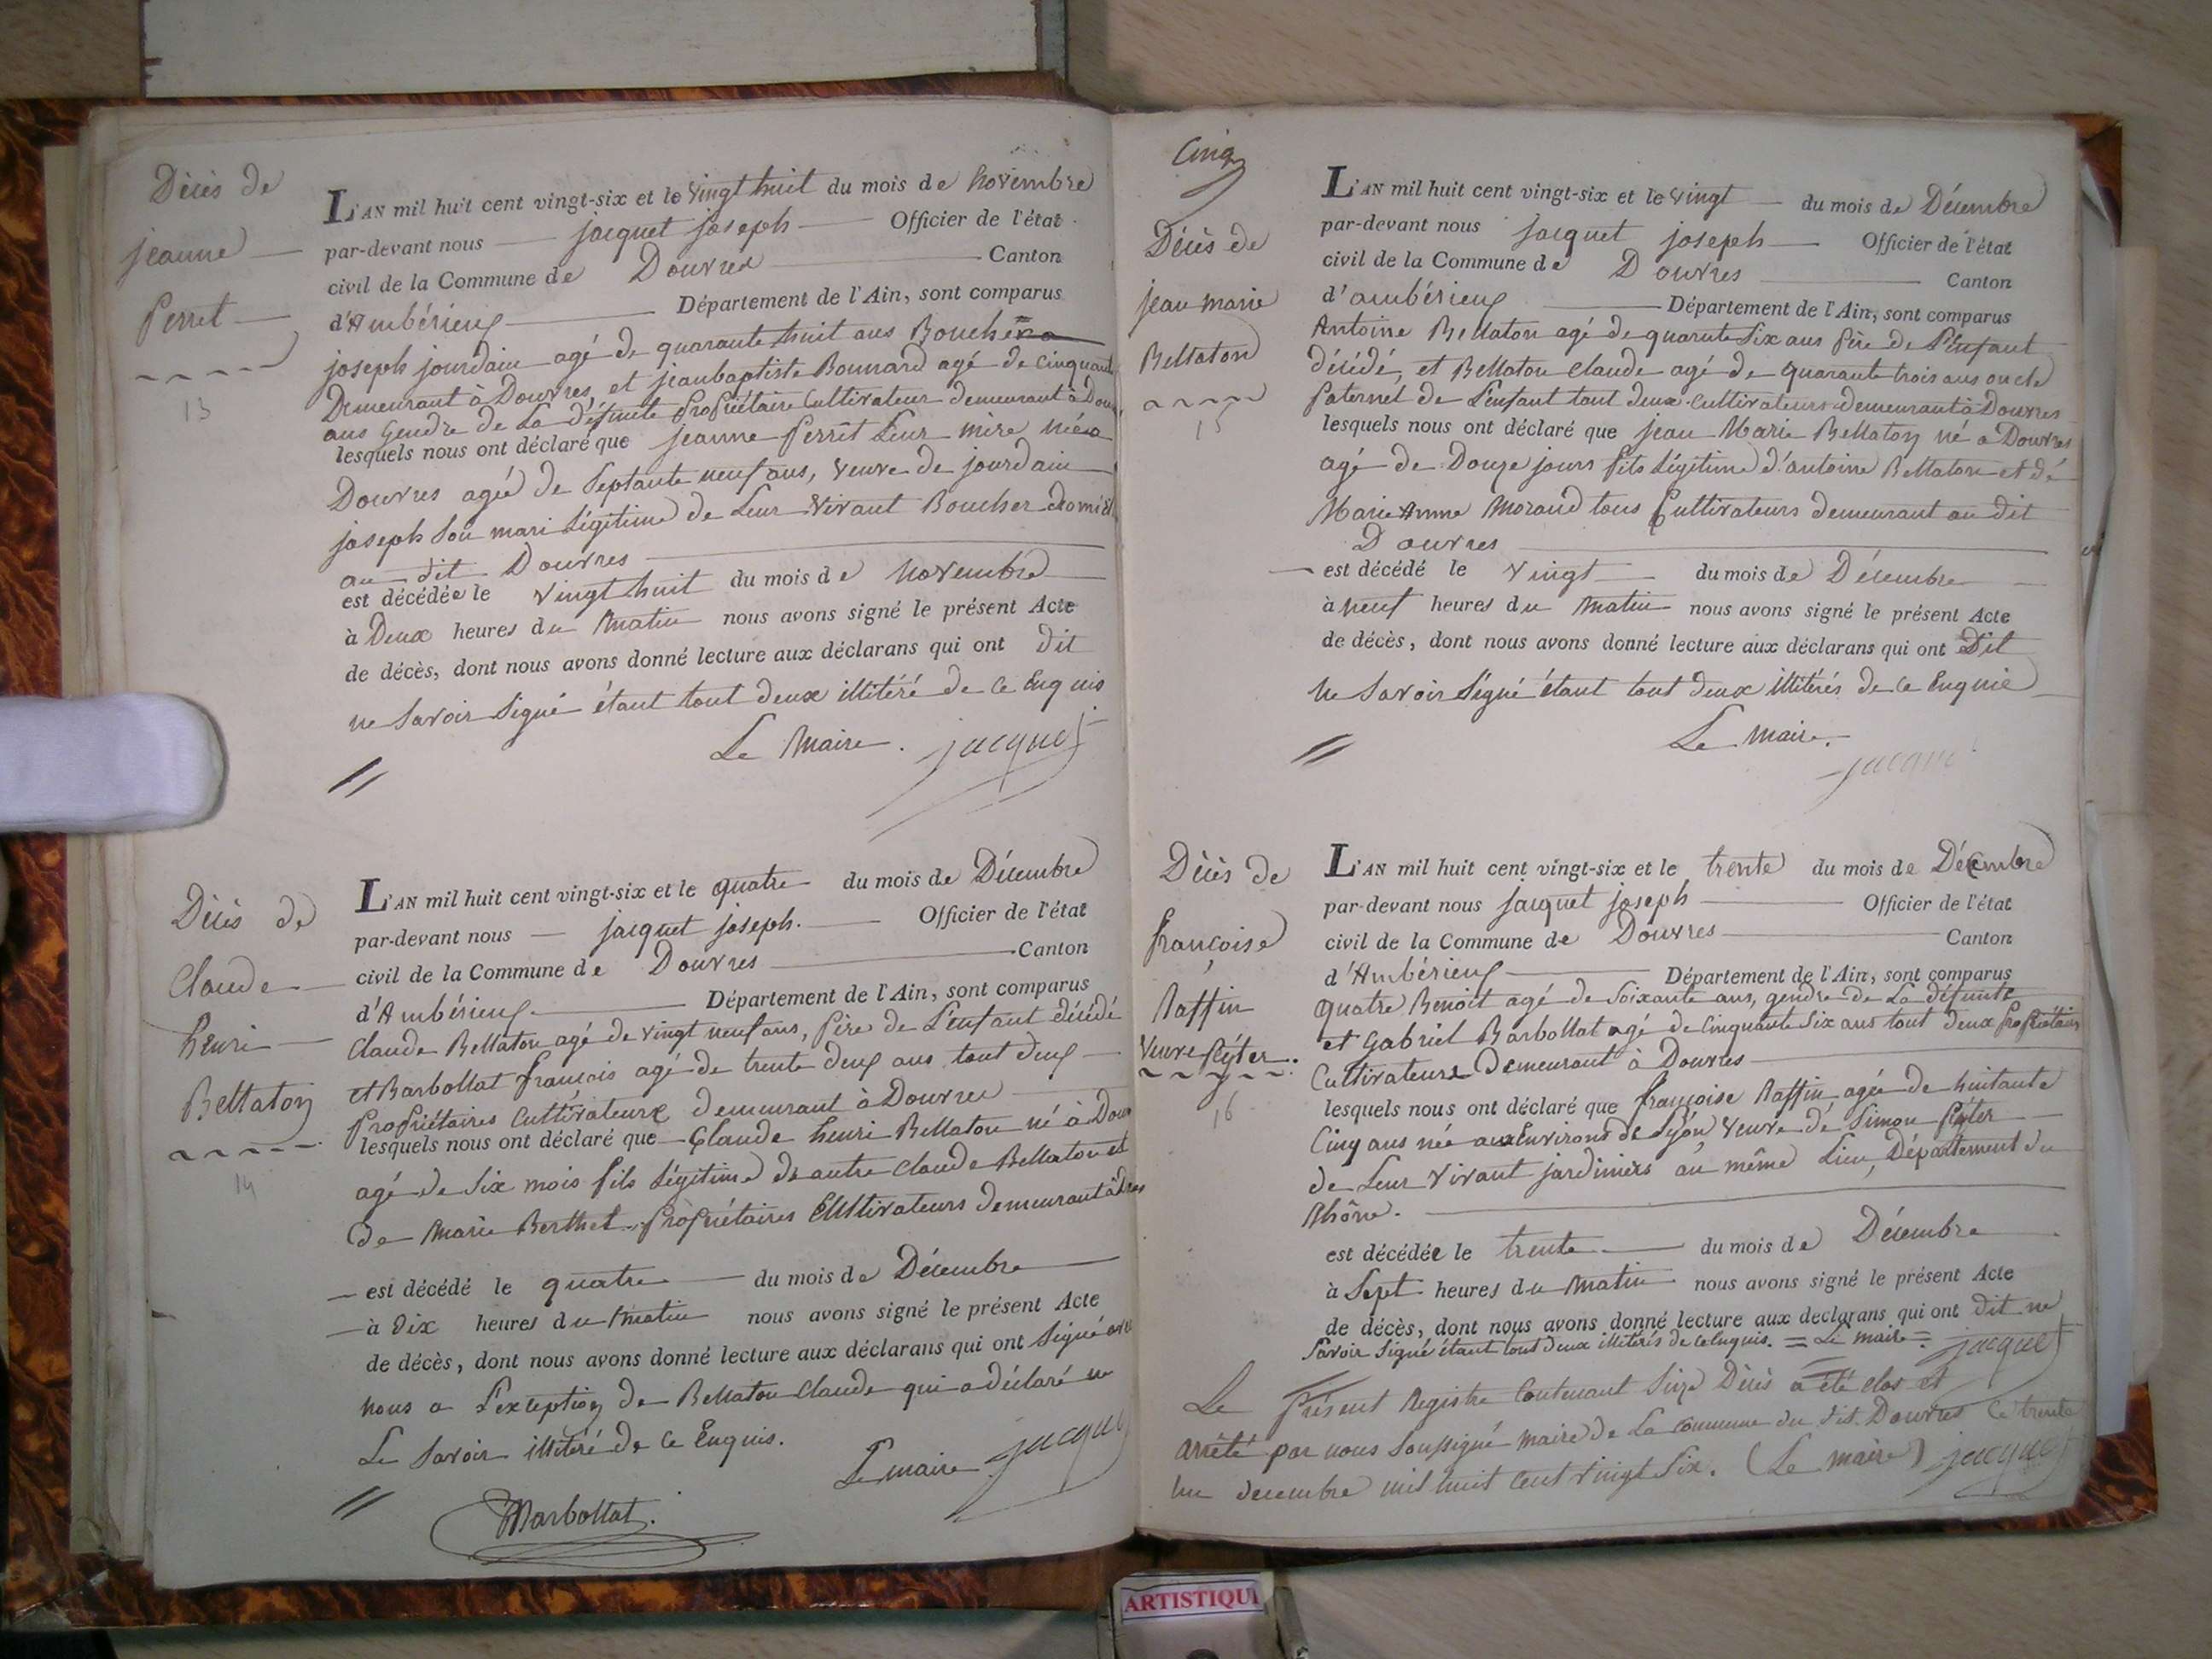 Décès de
jeanne
Perret
13
L'AN mil huit cent vingt-six et le vingt huit du mois de novembre
par-devant nous jacquet joseph Officier de l'état
civil de la Commune de Douvres Canton
d'Ambérieux Département de l'Ain, sont comparus
joseph jourdain agé de quarante huit ans Boucher
Demeurant à Douvres, et jeanbaptiste Bonnard agé de cinquante
ans Gendre de La défunte Propriétaire Cultivateur demeurant à Dou
lesquels nous ont déclaré que jeanne Perret Leur mère née a
Douvres agée de Septante neuf ans, veuve de jourdain
joseph Son mari Légitime de Leur vivant Boucher domicil
au dit Douvres
est décédée le vingt huit du mois de novembre
à Deux heures du matin nous avons signé le présent Acte
de décès, dont nous avons donné lecture aux déclarans qui ont dit
ne Savoir Signé étant tout deux illitéré de ce Enquis
Le Maire. jacquet
Décès de
Claude
henri
Bellaton
14
L'AN mil huit cent vingt-six et le quatre du mois de Décembre
par-devant nous jacquet joseph. Officier de l'état
civil de la Commune de Douvres Canton
d'Ambérieux Département de l'Ain, sont comparus
Claude Bellaton agé de vingt neuf ans, Père de L'enfant décédé
et Barbollat françois agé de trente deux ans tout deux
Propriétaires Cultivateurs demeurant à Douvres
lesquels nous ont déclaré que Claude henri Bellaton né à Douv
agé de Six mois fils Légitime de autre Claude Bellaton et
de Marie Berthet Propriétaires Cultivateurs demeurant à
est décédé le quatre du mois de Décembre
à dix heures du matin nous avons signé le présent Acte
de décès, dont nous avons donné lecture aux déclarans qui ont Signé avec
nous a L'exception de Bellaton Claude qui a déclaré ne
Le Savoir illitéré de ce Enquis.
Le maire jacquet
Barbollat.
Cinq
Décès de
jean marie
Bellaton
15
L'AN mil huit cent vingt-six et le vingt du mois de Décembre
par-devant nous jacquet joseph Officier de l'état
civil de la Commune de Douvres Canton
d'ambérieux Département de l'Ain, sont comparus
Antoine Bellaton agé de quarante Six ans Père de L'enfant
décédé, et Bellaton Claude agé de quarante trois ans oncle
Paternel de L'enfant tout deux Cultivateurs demeurant à Douvres
lesquels nous ont déclaré que jean Marie Bellaton né a Douvres
agé de Douze jours fils Légitime d'antoine Bellaton et de
Marie Anne Morand tous Cultivateurs demeurant au dit
Douvres
est décédé le vingt du mois de Décembre
à neuf heures du matin nous avons signé le présent Acte
de décès, dont nous avons donné lecture aux déclarans qui ont Dit
ne Savoir Signé étant tout deux illitérés de ce Enquie
Le maire.
jacquet
Décès de
françoise
Raffin
Veuve Péyter.
16
L'AN mil huit cent vingt-six et le trente du mois de Décembre
par-devant nous jacquet joseph Officier de l'état
civil de la Commune de Douvres Canton
d'Ambérieux Département de l'Ain, sont comparus
quatre Benoit agé de Soixante ans, gendre de La défunte
et Gabriel Barbollat agé de Cinquante Six ans tout deux Propriétaires
Cultivateurs Demeurant à Douvres
lesquels nous ont déclaré que françoise Raffin agée de huitante
Cinq ans née aux Environs de Lyon, veuve de Simon Péyter
de Leur vivant jardiniers au même Lieu, Département du
Rhône.
est décédée le trente du mois de Décembre
à Sept heures du matin nous avons signé le présent Acte
de décès, dont nous avons donné lecture aux declarans qui ont dit ne
Savoir Signé étant tout deux illitérés de ce Enquis. = Le maire = jacquet
Le Présent Registre Contenant Seize Décès a été clos et
arrêté par nous Soussigné maire de La commune du dit Douvres Ce trente
un decembre mil huit Cent vingt Six. (Le maire) jacquet
ARTISTIQU